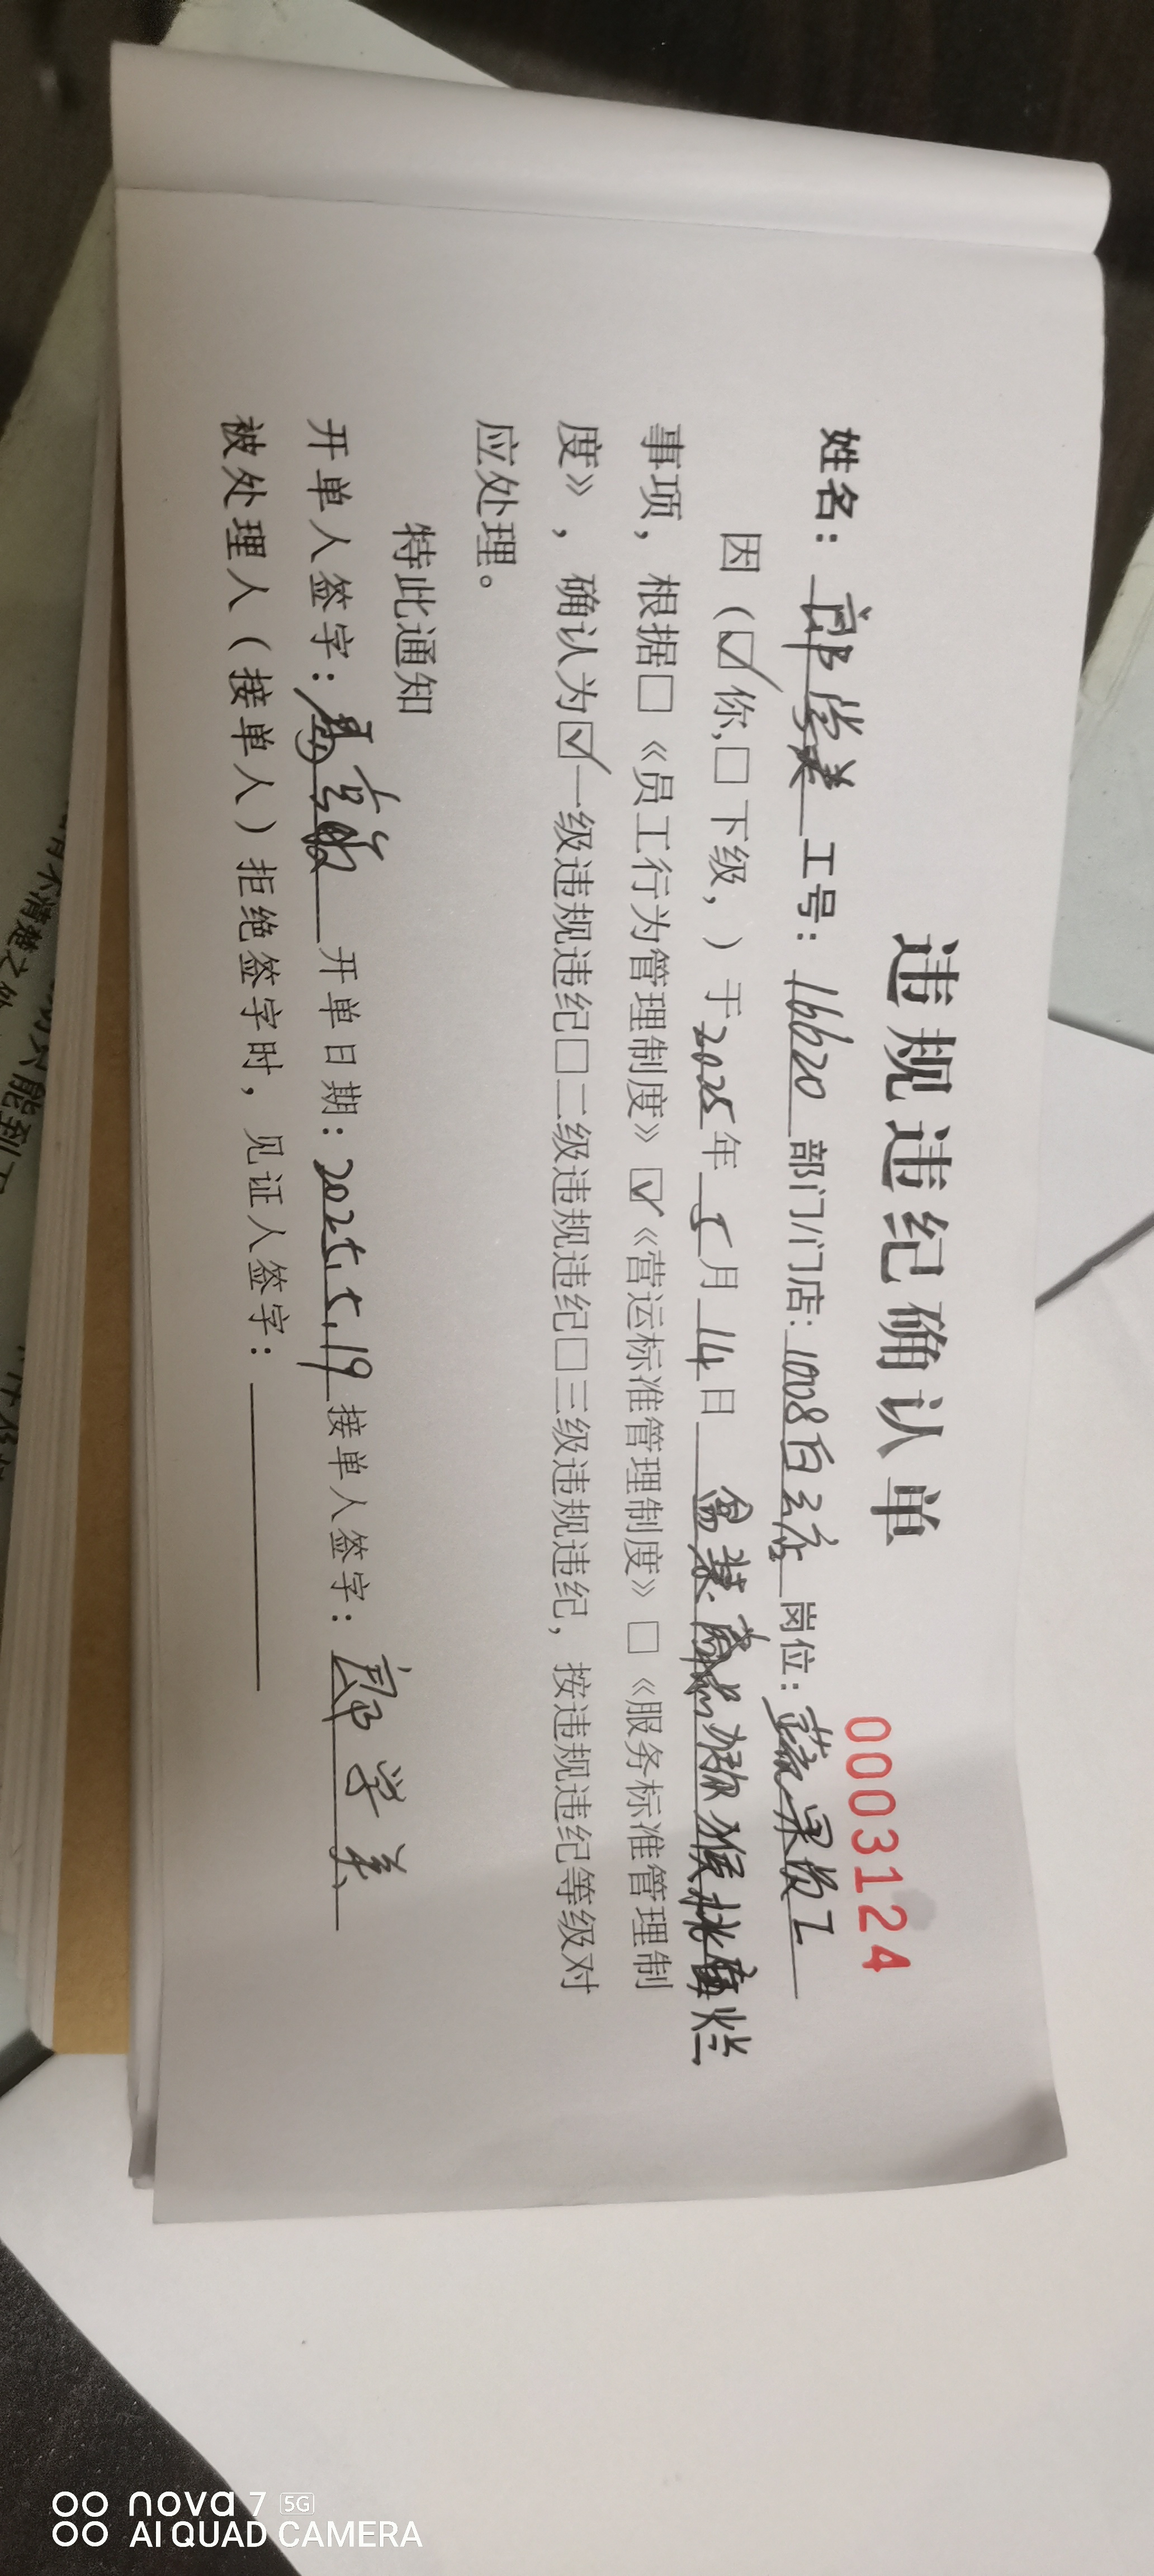 违规违纪确认单
0003124
姓名：郎学美 工号：16620 部门/门店：1008白云店 岗位：蔬果员工
因（☑你，□下级，）于2025年5月14日 猕猴桃 烂
事项，根据□《员工行为管理制度》☑《营运标准管理制度》□《服务标准管理制
度》，确认为☑一级违规违纪□二级违规违纪□三级违规违纪，按违规违纪等级对
应处理。
特此通知
开单人签字： 开单日期：2025.5.19 接单人签字：郎学美
被处理人（接单人）拒绝签字时，见证人签字：
有不清楚之处
只能到
nova 7 5G
AI QUAD CAMERA